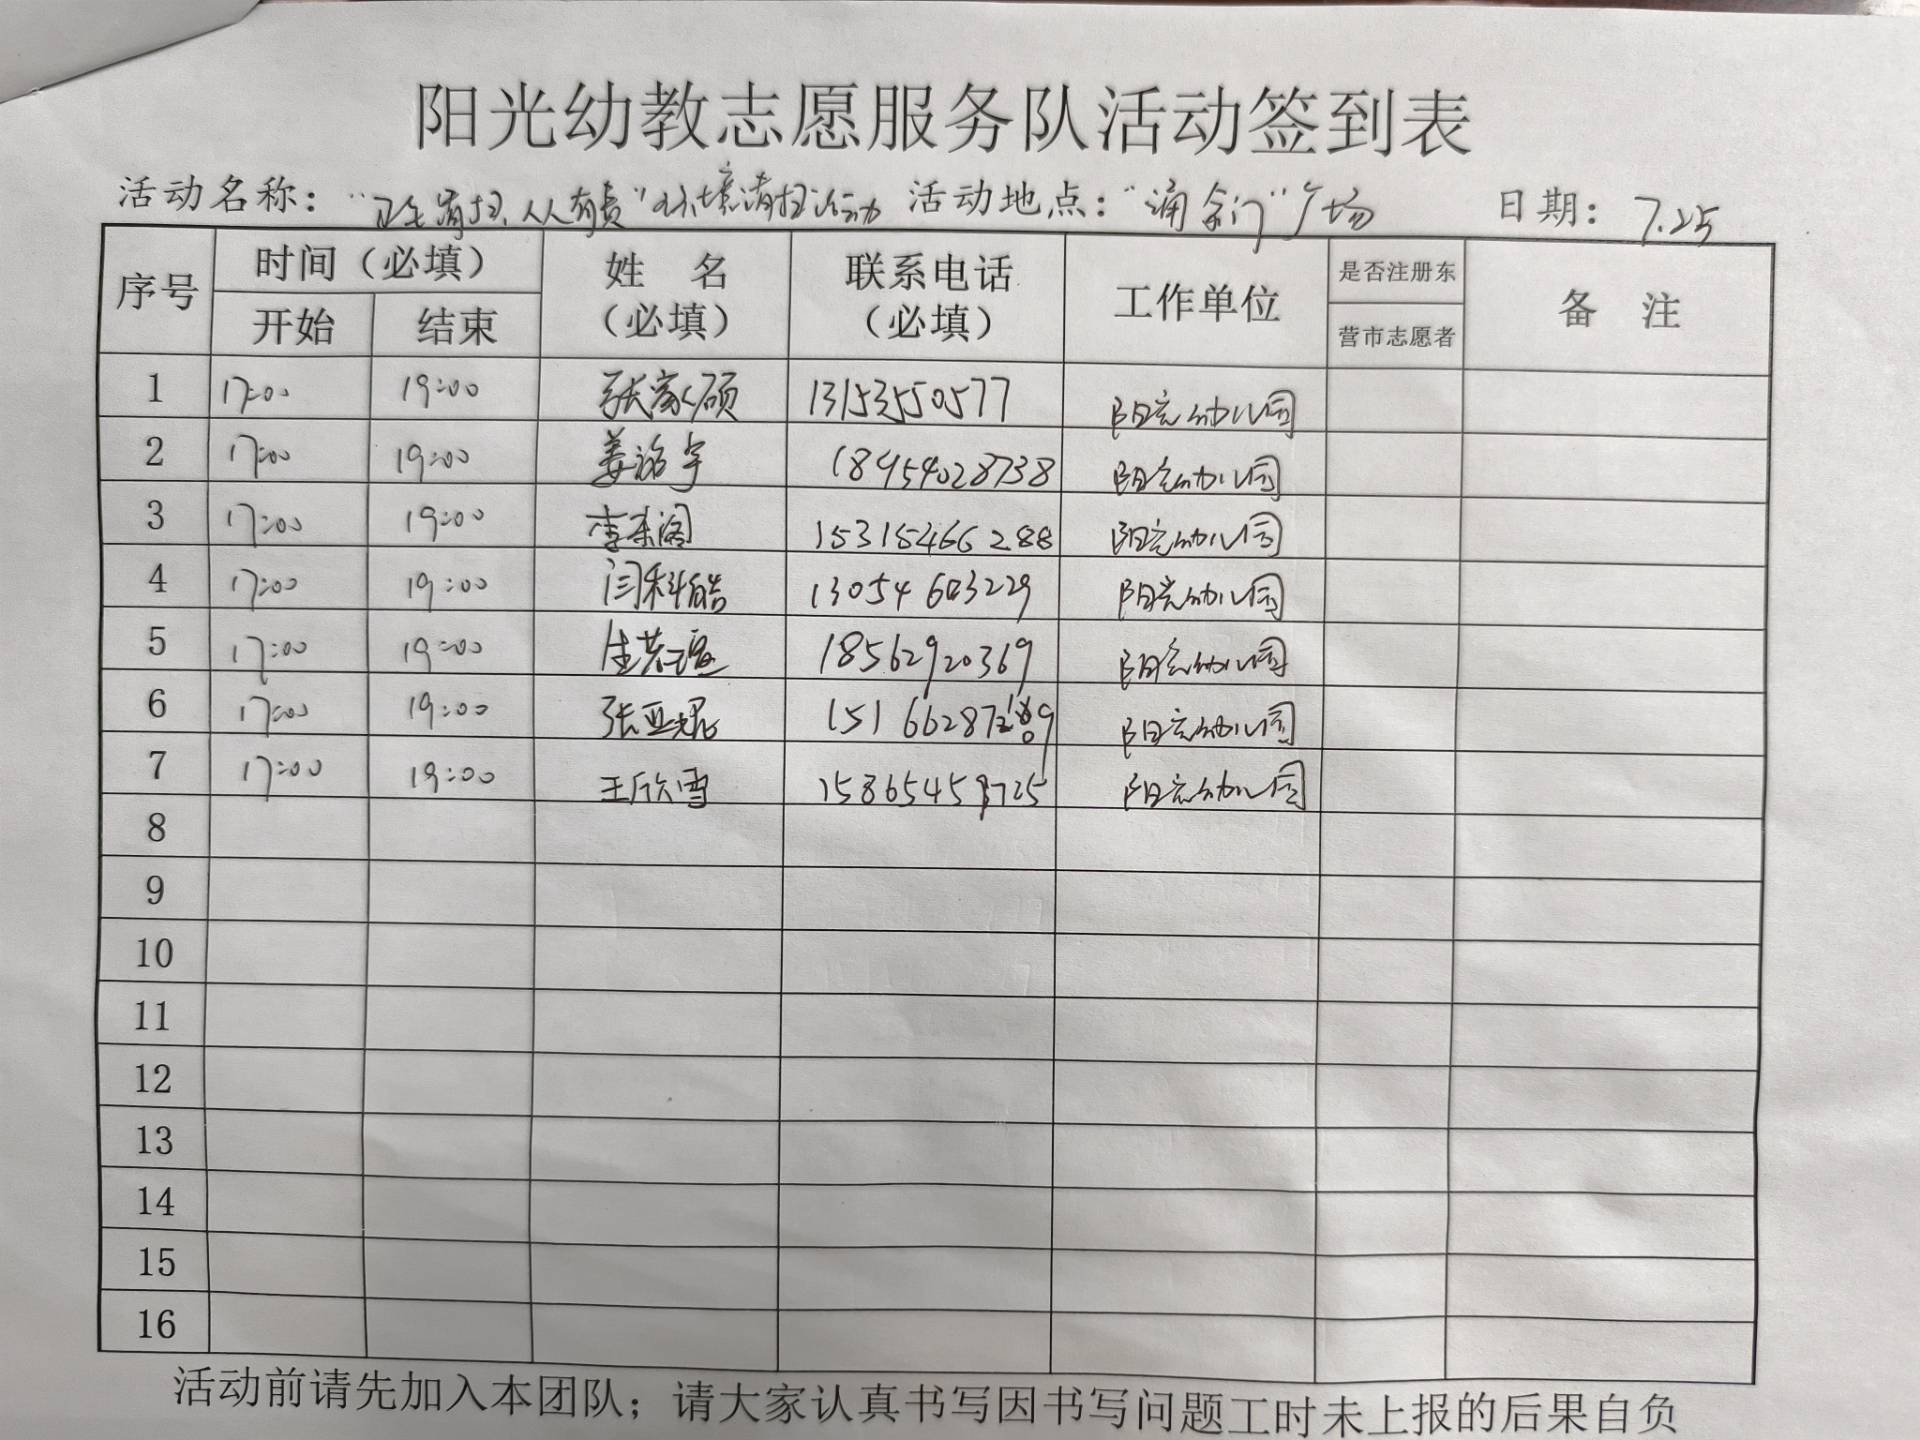 阳光幼教志愿服务队活动签到表
活动名称：“卫生清扫、人人有责”环境清扫活动 活动地点：“涌金门”广场 日期：7.25
序号 时间（必填） 姓 名（必填） 联系电话（必填） 工作单位 是否注册东营市志愿者 备 注
开始 结束
1 17:00 19:00 张家硕 13153550577 阳光幼儿园
2 17:00 19:00 姜洺宇 18954028738 阳光幼儿园
3 17:00 19:00 李来阁 15315466288 阳光幼儿园
4 17:00 19:00 闫科皓 13054603229 阳光幼儿园
5 17:00 19:00 18562920369 阳光幼儿园
6 17:00 19:00 张亚琨 阳光幼儿园
7 17:00 19:00 王欣雪 阳光幼儿园
8
9
10
11
12
13
14
15
16
活动前请先加入本团队；请大家认真书写因书写问题工时未上报的后果自负